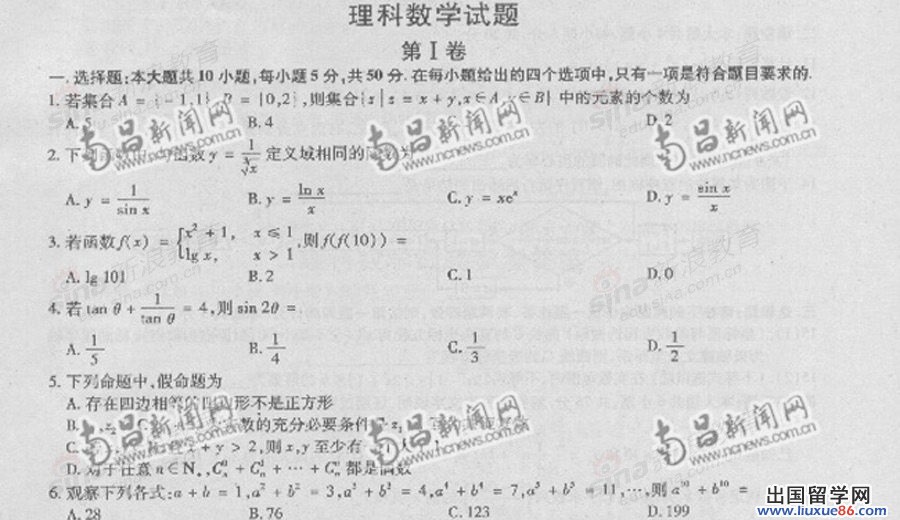 理科数学试题
第 I 卷
一. 选择题:本大题共 10 小题,每小题 5 分,共 50 分. 在每小题给出的四个选项中,只有一项是符合题目要求的.
1. 若集合 A = {-1,1}, B = {0,2},则集合{z | z = x + y,x∈A,y∈B} 中的元素的个数为
A. 5 B. 4 D. 2
2. 下 函数 y = 1/∛x 定义域相同的 为
A. y = 1/sin x B. y = ln x/x C. y = xeˣ D. y = sin x/x
3. 若函数 f(x) = { x² + 1, x ≤ 1 lg x, x > 1 ,则 f(f(10)) =
A. lg 101 B. 2 C. 1 D. 0
4. 若 tan θ + 1/tan θ = 4,则 sin 2θ =
A. 1/5 B. 1/4 C. 1/3 D. 1/2
5. 下列命题中,假命题为
A. 存在四边相等的四边形不是正方形
B. z₂ 数的充分必要条件 z₁
C. + y > 2,则 x,y 至少有
D. 对于任意 n∈N₊,C⁰ₙ + C¹ₙ + ⋯ + Cⁿₙ 都是偶数
6. 观察下列各式:a + b = 1,a² + b² = 3,a³ + b³ = 4,a⁴ + b⁴ = 7,a⁵ + b⁵ = 11,⋯,则 a¹⁰ + b¹⁰ =
A. 28 B. 76 C. 123 D. 199
南昌新闻网
www.ncnews.com.cn
南昌新闻网
www.ncnews.com.cn
南昌新闻网
www.ncnews.com.cn
南昌新闻网
www.ncnews.com.cn
sina 新浪教育
出国留学网
www.liuxue86.com